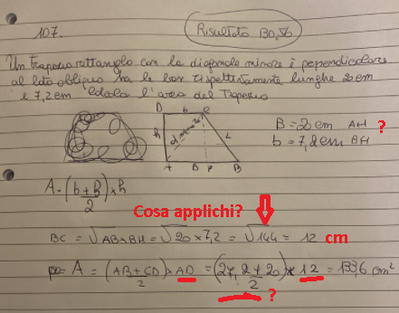 107.
Risultato 130,56
Un trapezio rettangolo con la diagonale minore è perpendicolare
al lato obliquo ha le basi rispettivamente lunghe 20 cm
e 7,2 cm Calcola l'area del Trapezio
D b C
h diagonale L
A B P B
B = 20 cm AH ?
b = 7,2 cm BH
A = (b+B/2) × h
Cosa applichi?
BC = √AB×BH = √20×7,2 = √144 = 12 cm
A = (AB+CD)/2 × AD = (27,2+20/2) × 12 = 133,6 cm²
?